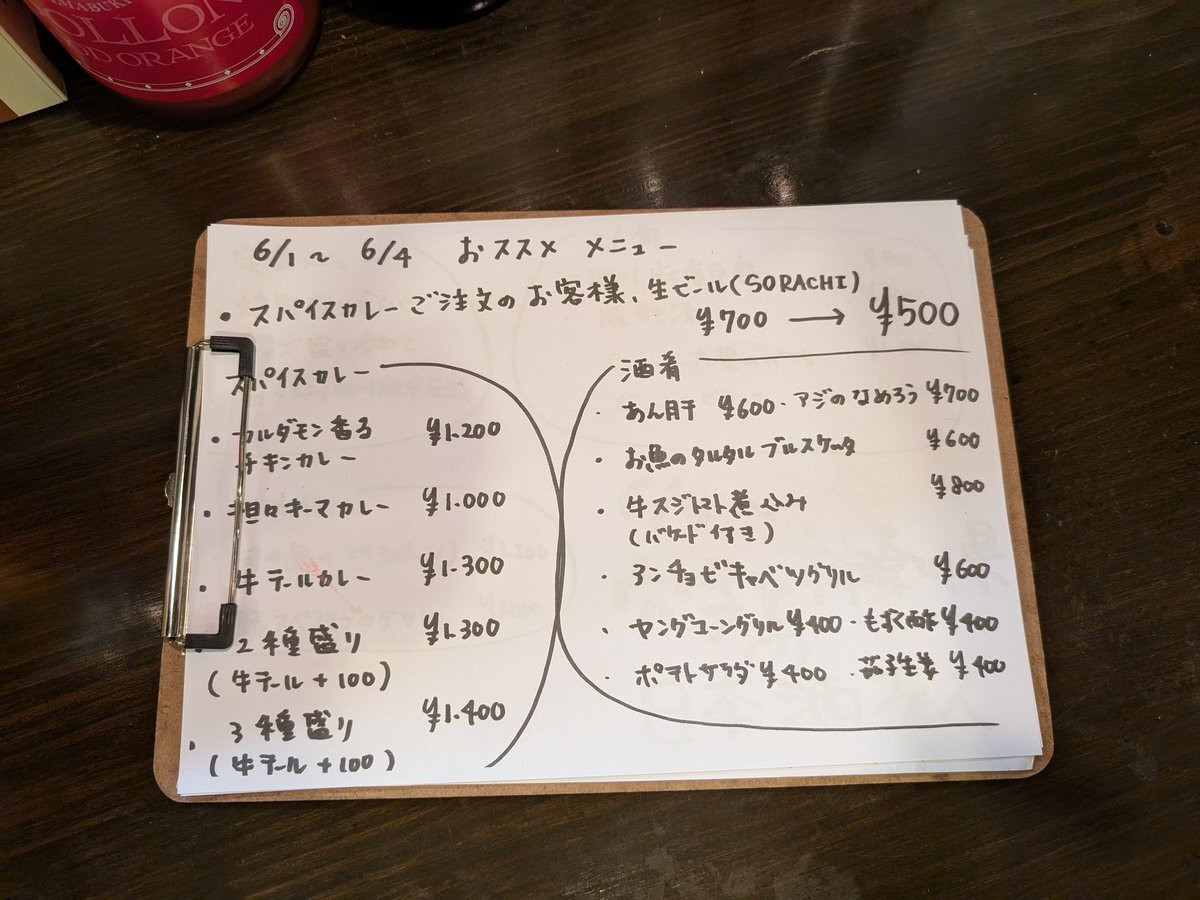 MABUKI
OLLON
D ORANGE
6/1～ 6/4 おススメ メニュー
• スパイスカレーご注文のお客様、生ビール(SORACHI)
¥700 → ¥500
スパイスカレー
• カルダモン香る ¥1.200
チキンカレー
• 担々キーマカレー ¥1.000
• 牛テールカレー ¥1.300
• 2種盛り ¥1.300
(牛テール+100)
• 3種盛り ¥1.400
(牛テール+100)
酒肴
・あん肝 ¥600・アジのなめろう ¥700
・お魚のタルタルブルスケッタ ¥600
・牛スジトマト煮込み ¥800
(バケット付き)
・アンチョビキャベツグリル ¥600
・ヤングコーングリル ¥400・もずく酢 ¥400
・ポテトサラダ ¥400 ・茄子生姜 ¥400